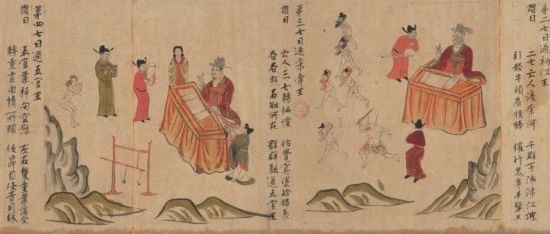 第二七日過初江王
讚曰
二七亡人渡奈河　千群万隊涉江波
引路牛頭肩俠棒　催行鬼卒手擎叉
第三七日過宋帝王
讚曰
亡人三七轉恓惶　始覺冥途險路長
各各點名知所在　群群驅送五官王
第四七日過五官王
讚曰
五官業秤向空懸　左右雙童業簿全
輕重豈由情所願　低昂自任昔因緣